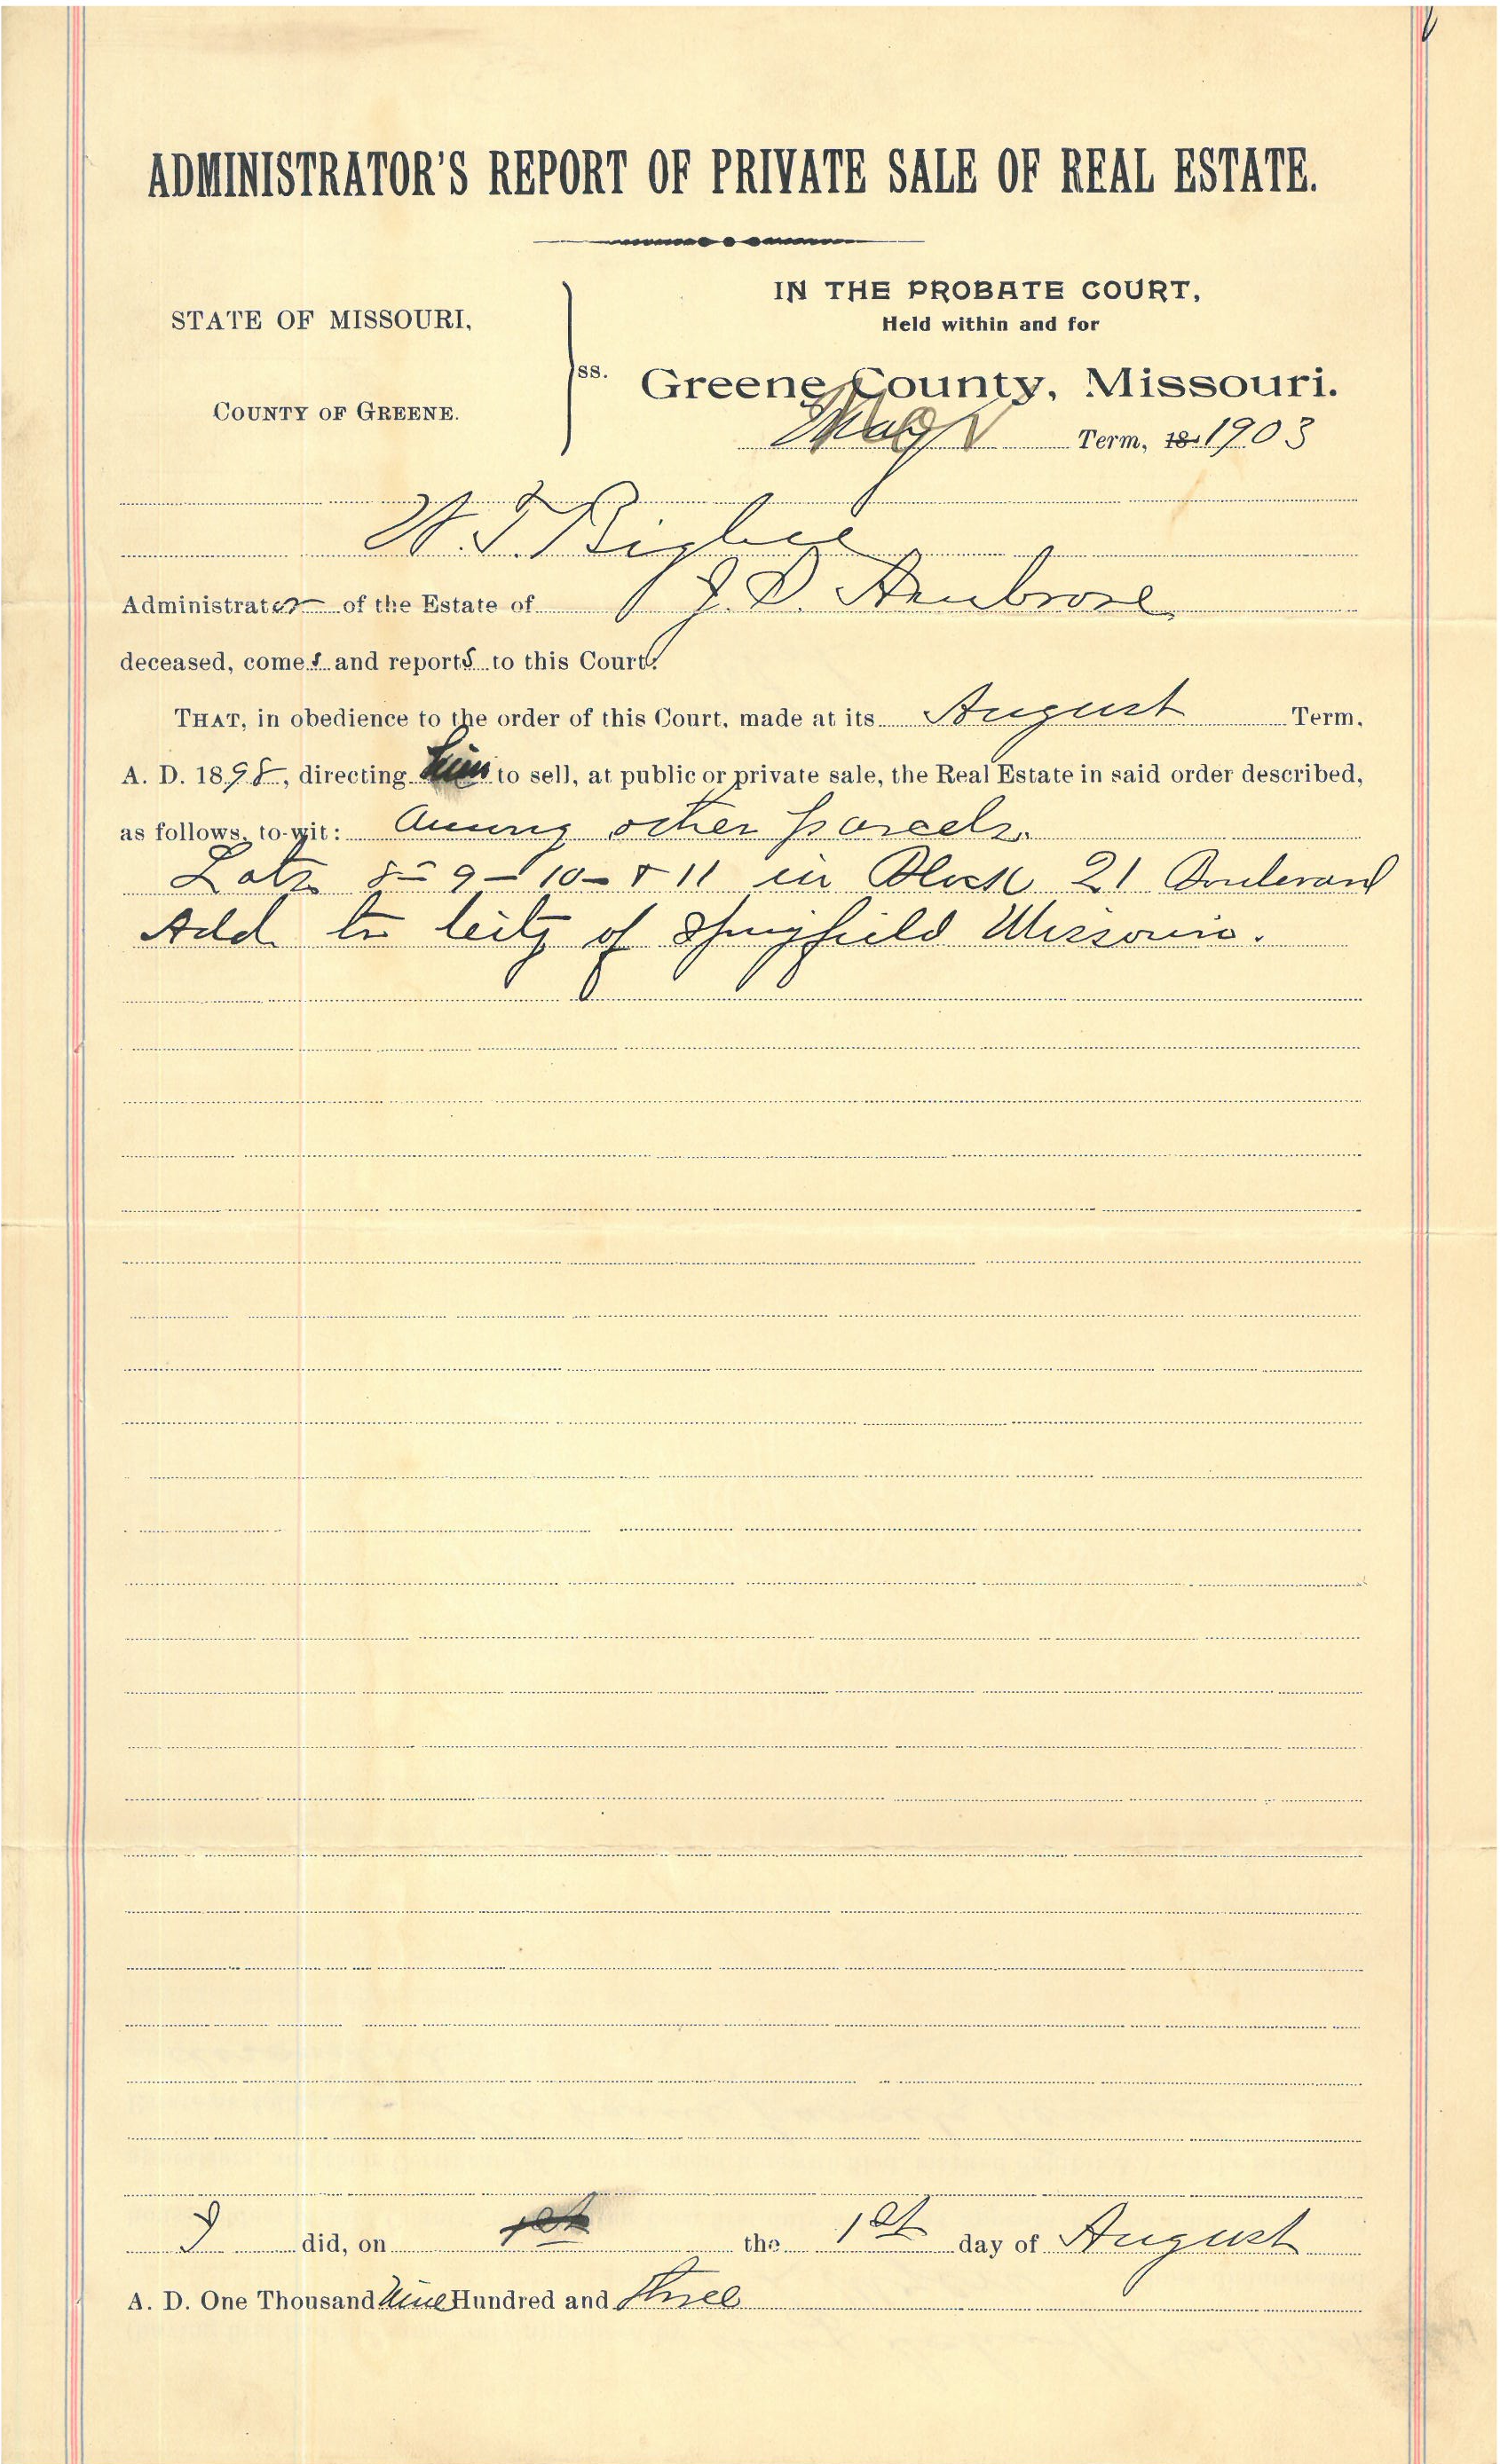 ADMINISTRATOR'S REPORT OF PRIVATE SALE OF REAL ESTATE.
IN THE PROBATE COURT,
STATE OF MISSOURI,
Held within and for
ss.
Greene County, Missouri.
COUNTY OF GREENE.
Term, 18 1903
W. T. Bigbee
Administrator of the Estate of J. D. Ambrose
deceased, comes and reports to this Court:
THAT, in obedience to the order of this Court, made at its August Term,
A. D. 1898, directing him to sell, at public or private sale, the Real Estate in said order described,
as follows, to-wit: Among other parcels.
Lots 8-9-10-& 11 in Block 21 Boulevard
Add to City of Springfield Missouri.
I did, on 1st the 1st day of August
A. D. One Thousand Nine Hundred and Three